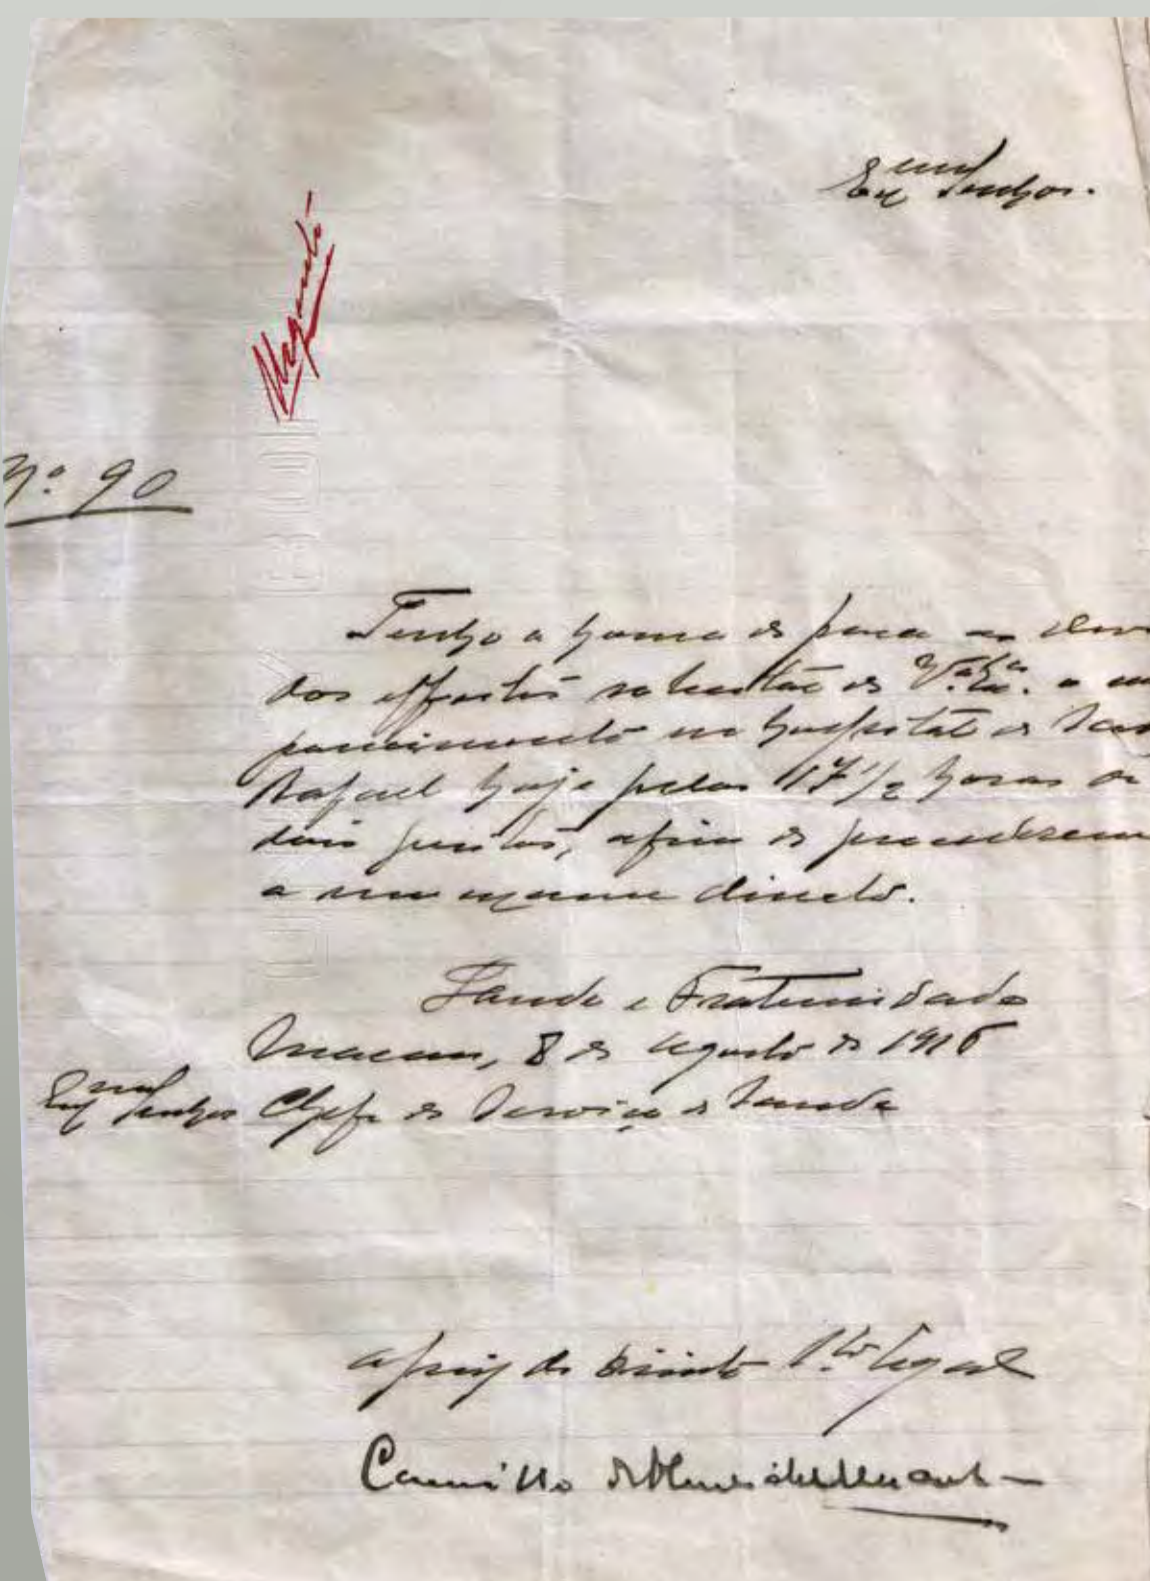 Exmo Senhor.
Urgente
Nº 90
Tenho a honra de para os dev
dos effeitos solicitar de V.ª Ex.ª o com
parecimento no hospital de San
Rafael hoje pelas 17 1/2 horas de
dois peritos, afim de procederem
a um exame directo.
Saude e Fraternidade
Macau, 8 de Agosto de 1916
Exmo Senhor Chefe do Serviço de Saude
O Juiz de Direito 1º Sto legal
Camillo d'Almeida